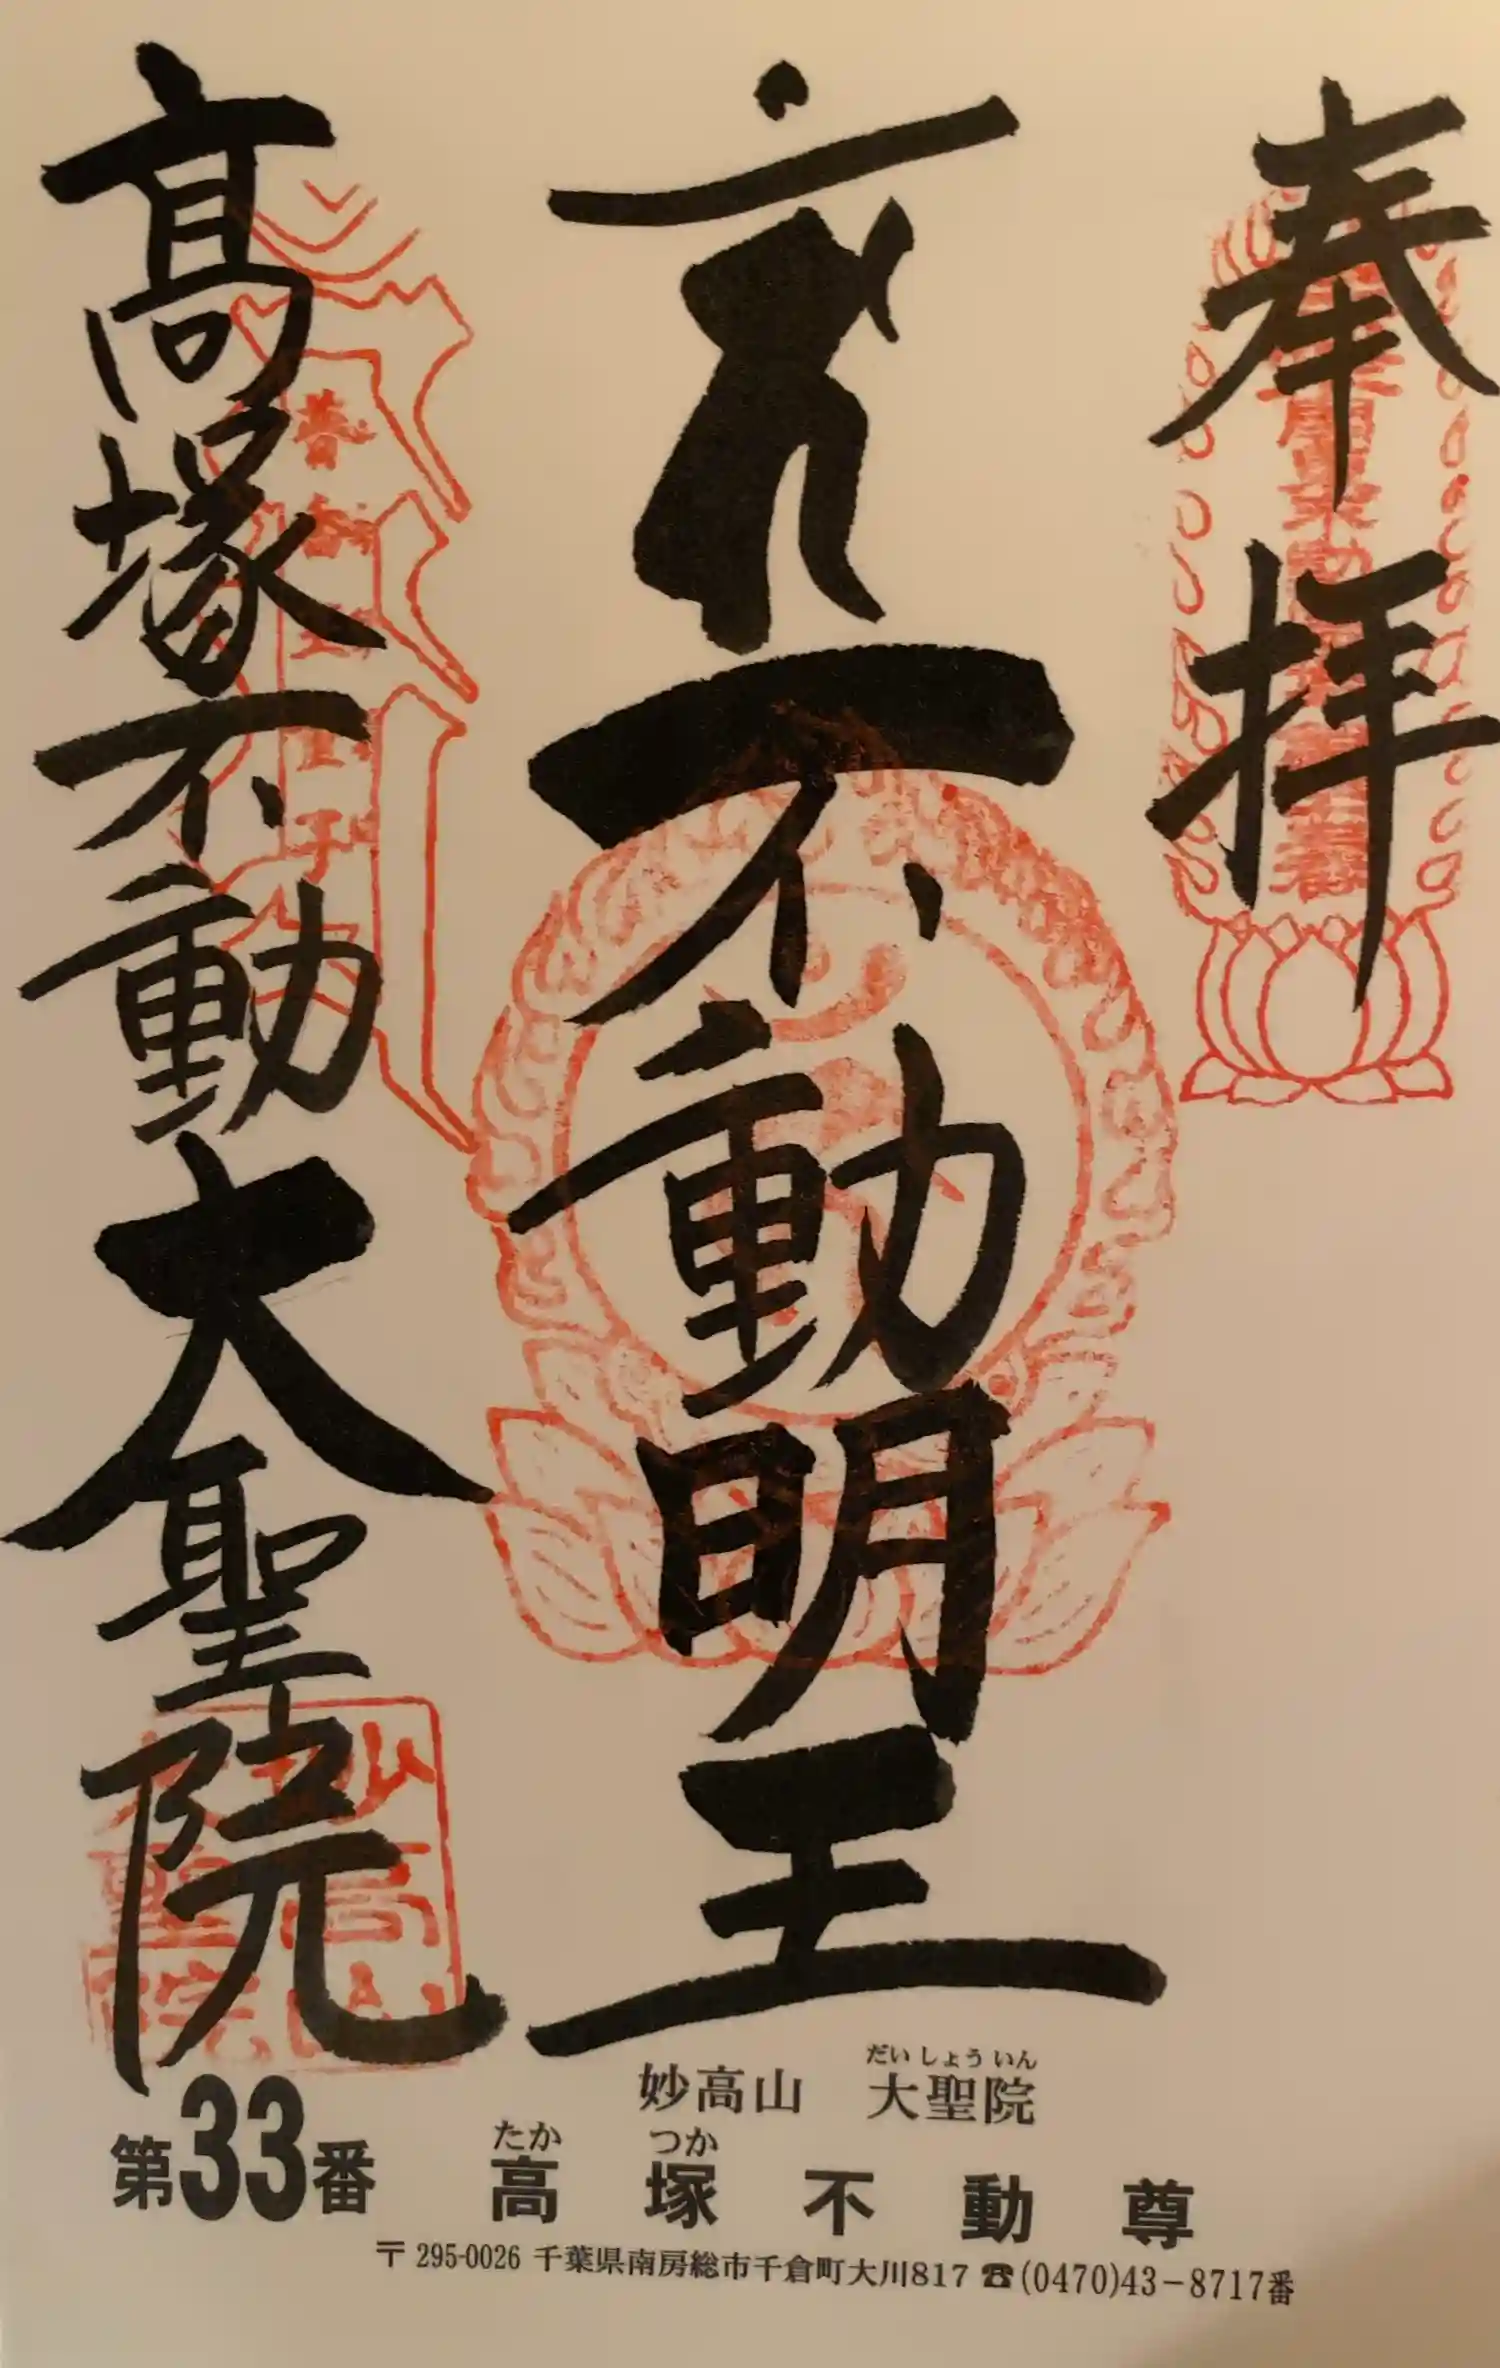 奉拝
不動明王
高塚不動大聖院
妙高山　大聖院
だいしょういん
第33番　高塚不動尊
たか　つか
〒295-0026 千葉県南房総市千倉町大川817 ☎(0470)43-8717番